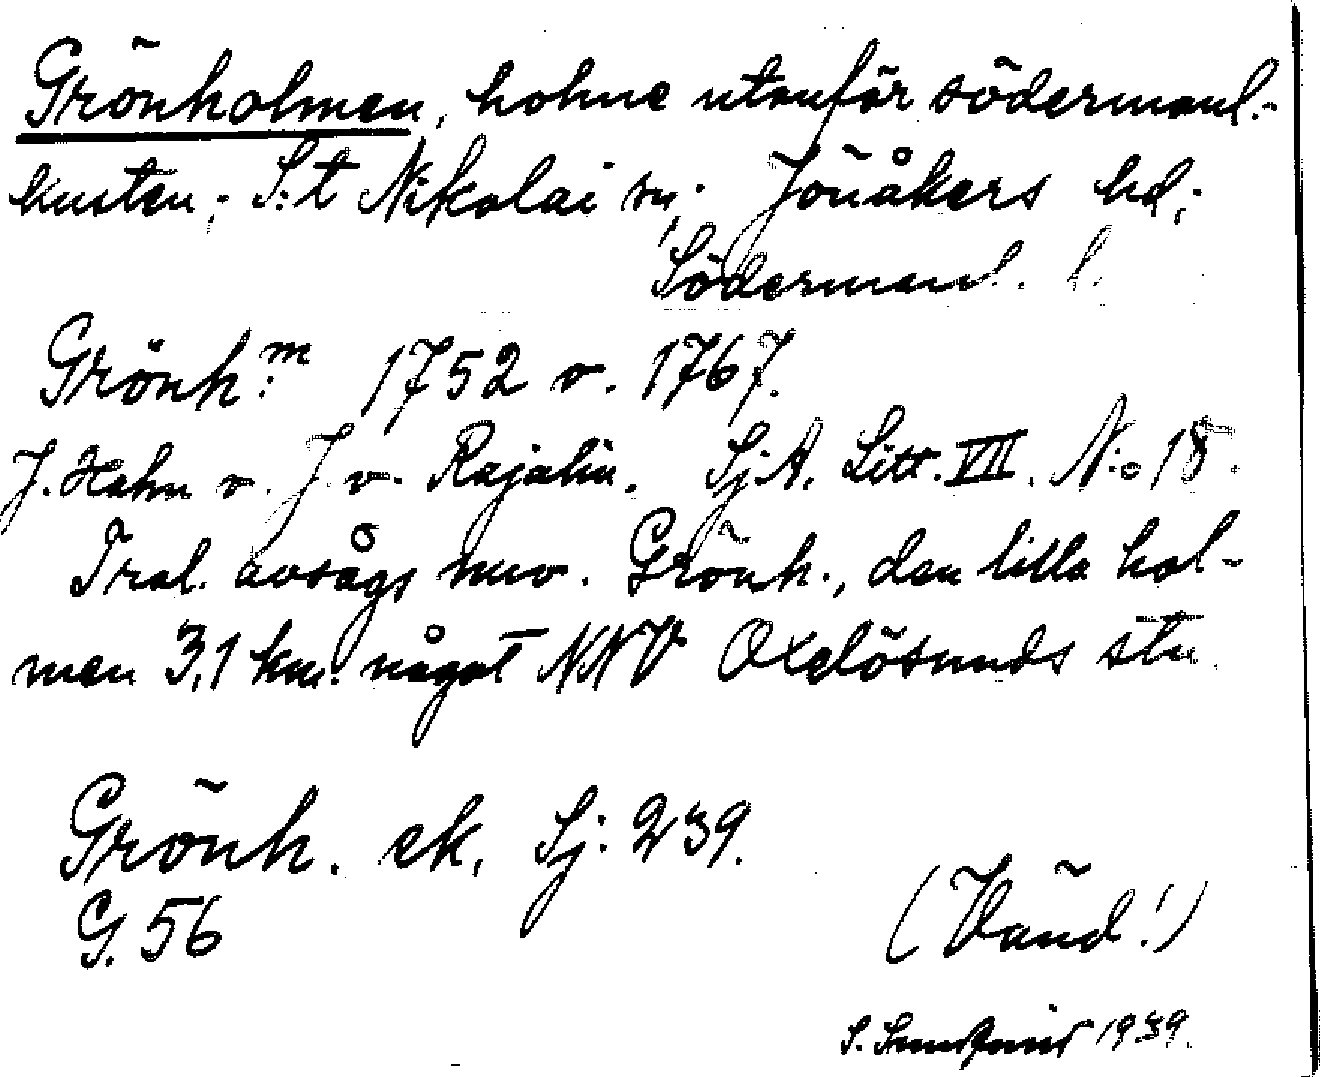 Grönholmen, holme utanför södermanl.-
kusten; S:t Nikolai sn; Jönåkers hd;
Södermanl. l.
Grönh:m 1752 o. 1767.
J. Hahn o. J. v. Rajalin. Sj.A. Litt. VII. N:o 18.
Trol. avsågs nuv. Grönh., den lilla hol-
men 3,1 km. något NNV Oxelösunds stn.
Grönh. ek. Sj: 239.
G. 56
(Vänd!)
S. 1939.